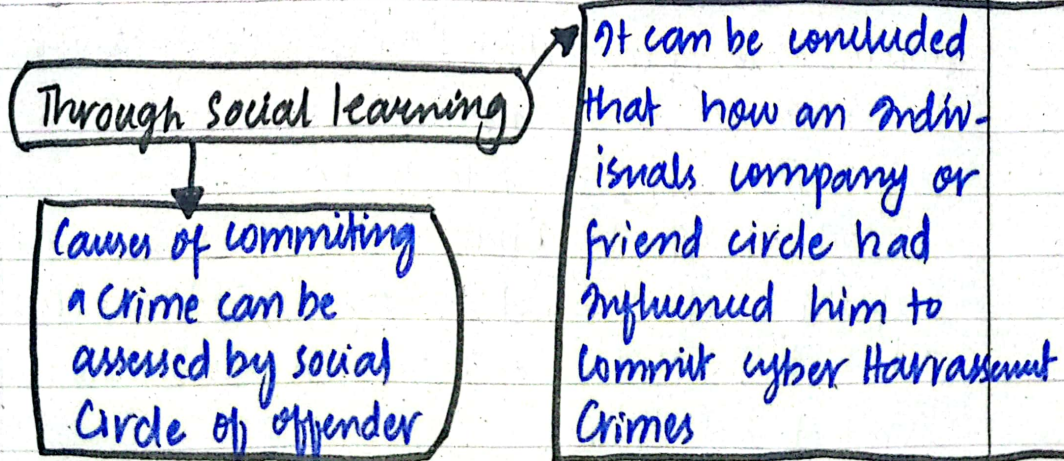 Through Social learning
Causes of commiting
a Crime can be
assessed by social
Circle of offender
It can be concluded
that how an Indiv-
isuals company or
friend circle had
Influenced him to
Commit cyber Harrassemnt
Crimes